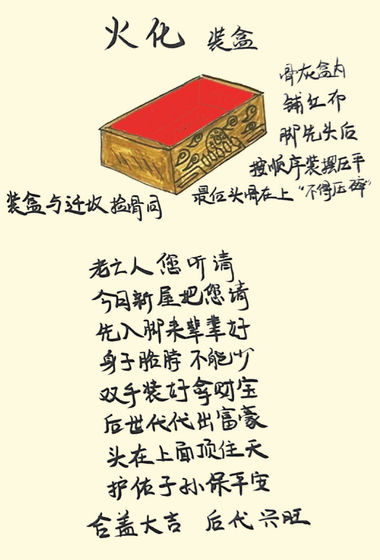 火化 装盒
骨灰盒内
铺红布
脚先头后
按顺序装摆压平
最后头骨在上“不得压碎”
装盒与迁坟捡骨同
老亡人您听清
今日新屋把您请
先入脚来辈辈好
身子胳脖不能少
双手装好拿财宝
后世代代出富豪
头在上面顶住天
护佑子孙保平安
合盖大吉 后代兴旺